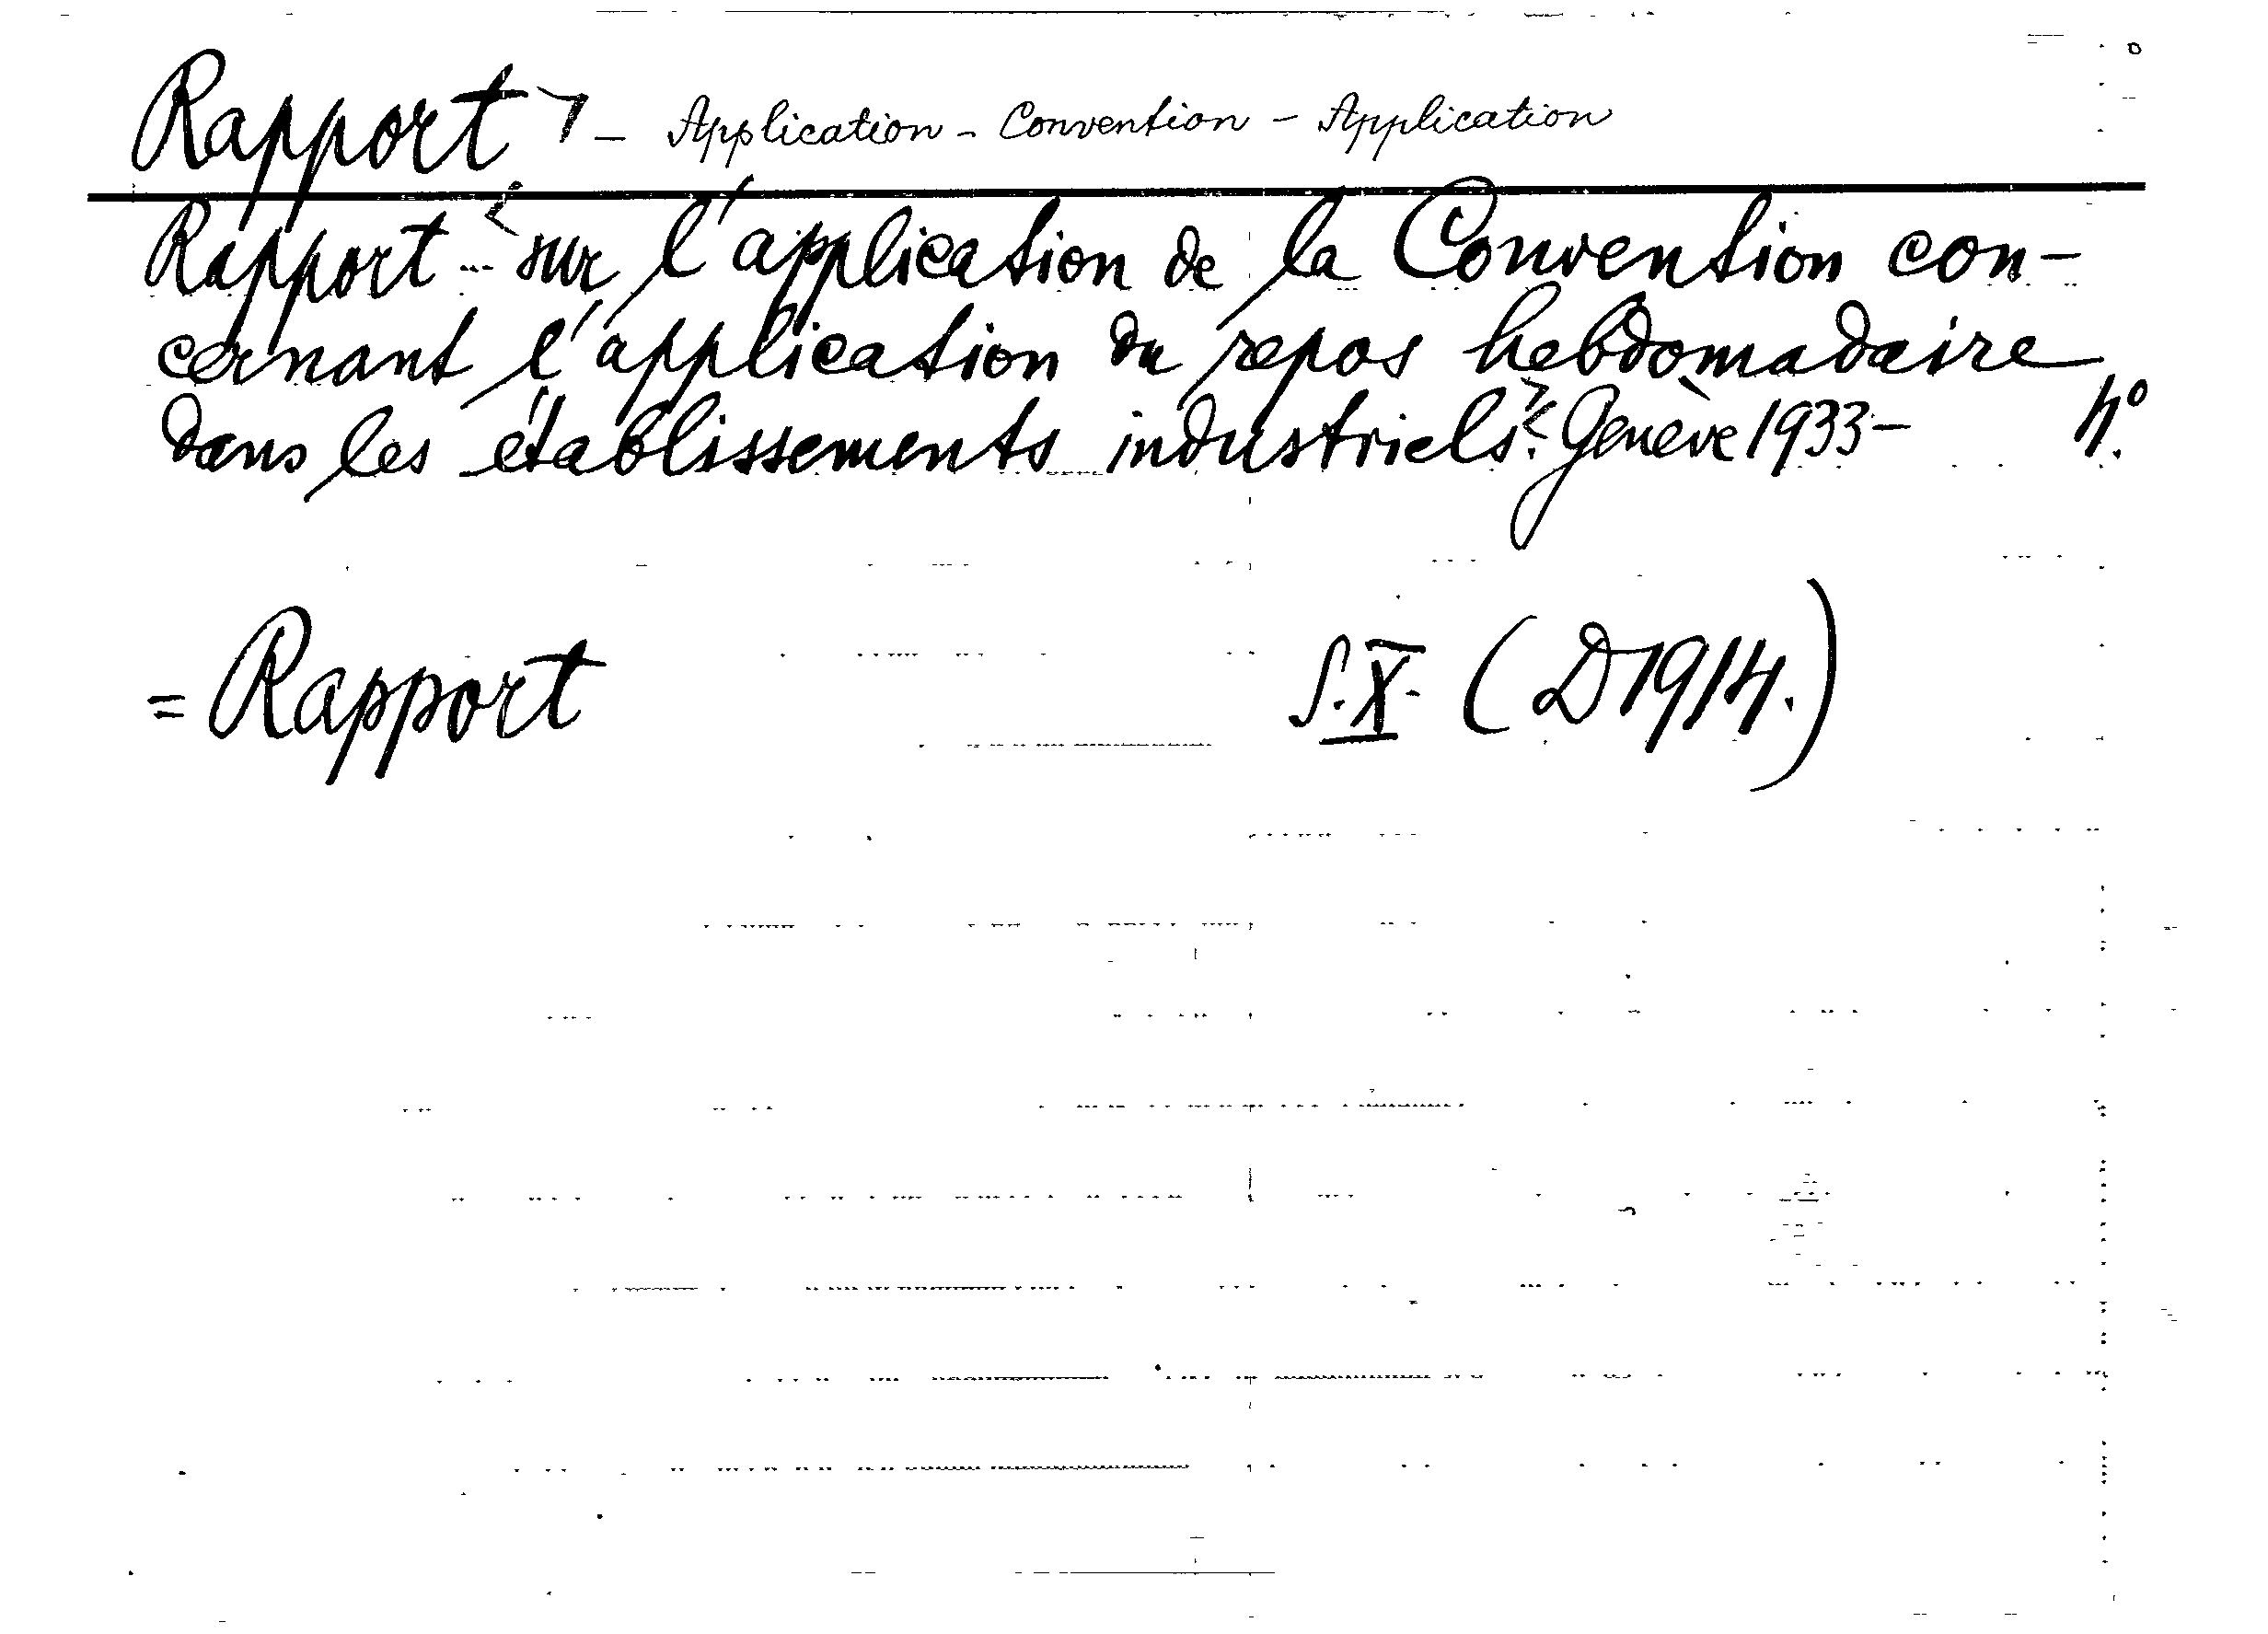 Rapport - Application - Convention - Application
Rapport sur l'application de la Convention con-
cernant l'application du repos hebdomadaire
dans les établissements industriels. Genève 1933- 4°.
= Rapport S.X. (D1914.)